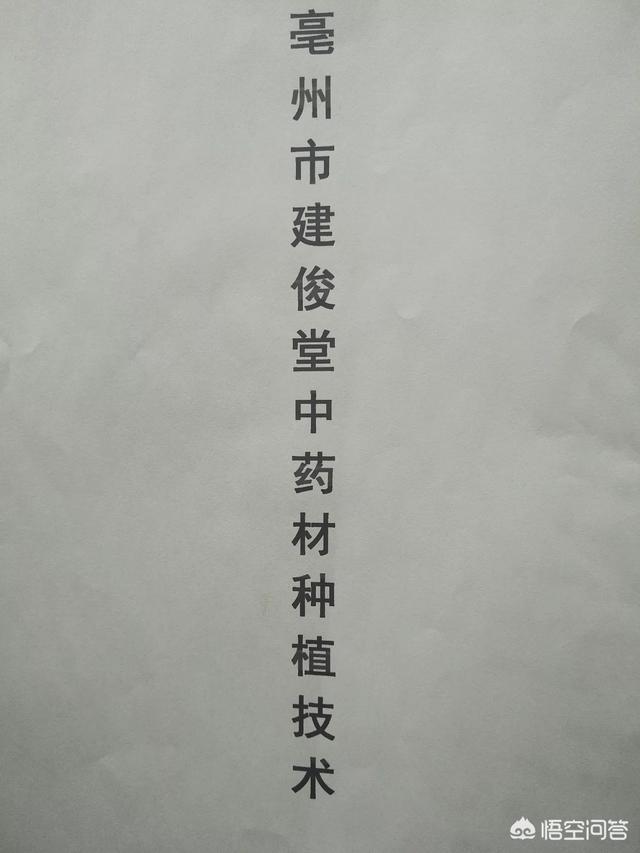 亳州市建俊堂中药材种植技术
悟空问答